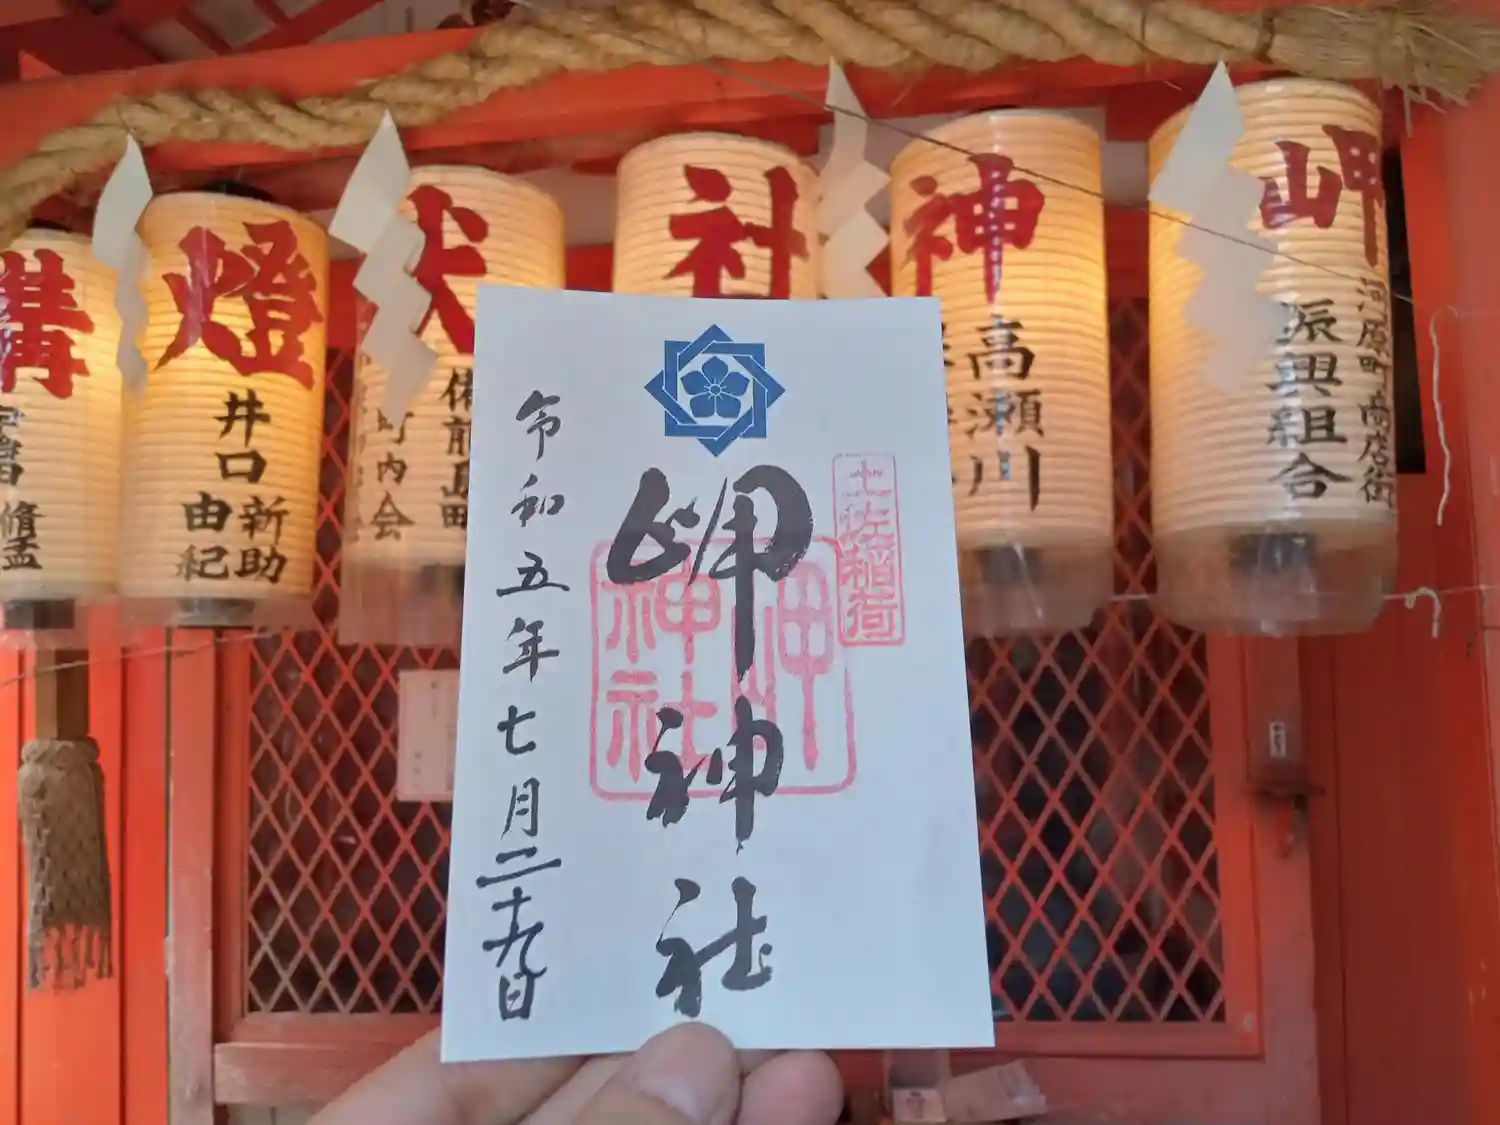 岬
河原町商店街
振興組合
神
高瀬川
社
伏
備前島町
町内会
燈
井口
新助
由紀
講
脩孟
土佐稲荷
岬神社
岬
神社
令和五年七月二十九日